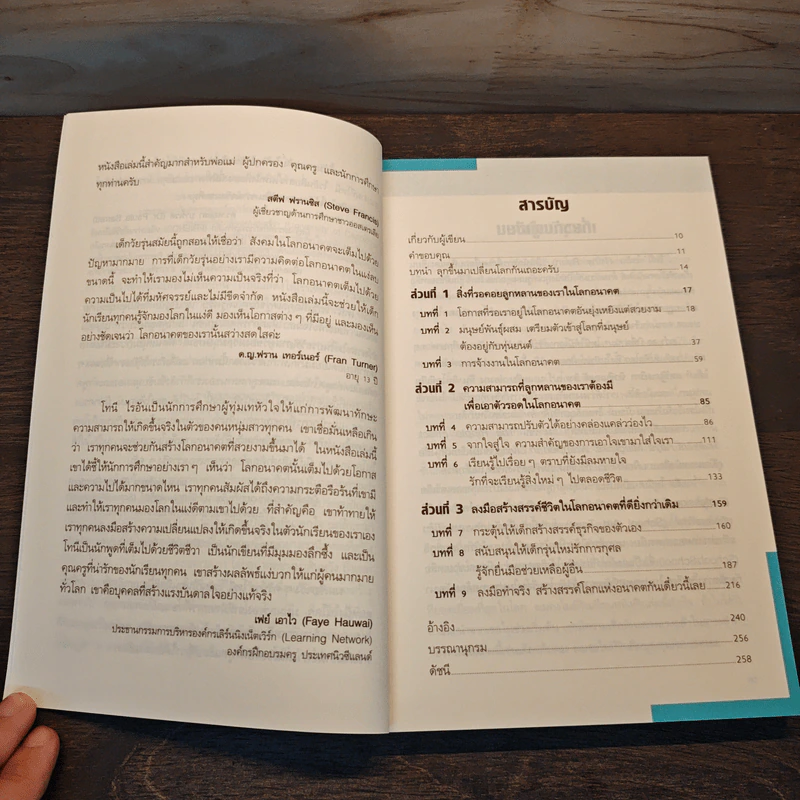 หนังสือเล่มนี้สำคัญมากสำหรับพ่อแม่ ผู้ปกครอง คุณครู และนักการศึกษา
ทุกท่านครับ
สตีฟ ฟรานซิส (Steve Francis)
ผู้เชี่ยวชาญด้านการศึกษาชาวออสเตรเลีย
เด็กวัยรุ่นสมัยนี้ถูกสอนให้เชื่อว่า สังคมในโลกอนาคตจะเต็มไปด้วย
ปัญหามากมาย การที่เด็กวัยรุ่นอย่างเรามีความคิดต่อโลกอนาคตในแง่ลบ
ขนาดนี้ จะทำให้เรามองไม่เห็นความเป็นจริงที่ว่า โลกอนาคตเต็มไปด้วย
ความเป็นไปได้ที่มหัศจรรย์และไม่มีขีดจำกัด หนังสือเล่มนี้จะช่วยให้เด็ก
นักเรียนทุกคนรู้จักมองโลกในแง่ดี มองเห็นโอกาสต่าง ๆ ที่มีอยู่ และมองเห็น
อย่างชัดเจนว่า โลกอนาคตของเรานั้นสว่างสดใสค่ะ
ด.ญ.ฟราน เทอร์เนอร์ (Fran Turner)
อายุ 13 ปี
โทนี ไรอันเป็นนักการศึกษาผู้ทุ่มเทหัวใจให้แก่การพัฒนาทักษะ
ความสามารถให้เกิดขึ้นจริงในตัวของคนหนุ่มสาวทุกคน เขาเชื่อมั่นเหลือเกิน
ว่า เราทุกคนจะช่วยกันสร้างโลกอนาคตที่สวยงามขึ้นมาได้ ในหนังสือเล่มนี้
เขาได้ชี้ให้นักการศึกษาอย่างเรา ๆ เห็นว่า โลกอนาคตนั้นเต็มไปด้วยโอกาส
และความไปได้มากขนาดไหน เราทุกคนสัมผัสได้ถึงความกระตือรือร้นที่เขามี
และทำให้เราทุกคนมองโลกในแง่ดีตามเขาไปด้วย ที่สำคัญคือ เขาท้าทายให้
เราทุกคนลงมือสร้างความเปลี่ยนแปลงให้เกิดขึ้นจริงในตัวนักเรียนของเราเอง
โทนีเป็นนักพูดที่เต็มไปด้วยชีวิตชีวา เป็นนักเขียนที่มีมุมมองลึกซึ้ง และเป็น
คุณครูที่น่ารักของนักเรียนทุกคน เขาสร้างผลลัพธ์แง่บวกให้แก่ผู้คนมากมาย
ทั่วโลก เขาคือบุคคลที่สร้างแรงบันดาลใจอย่างแท้จริง
เฟย์ เอาไว (Faye Hauwai)
ประธานกรรมการบริหารองค์กรเลิร์นนิงเน็ตเวิร์ก (Learning Network)
องค์กรฝึกอบรมครู ประเทศนิวซีแลนด์
สารบัญ
เกี่ยวกับผู้เขียน 10
คำขอบคุณ 11
บทนำ ลุกขึ้นมาเปลี่ยนโลกกันเถอะครับ 14
ส่วนที่ 1 สิ่งที่รอคอยลูกหลานของเราในโลกอนาคต 17
บทที่ 1 โอกาสที่รอเราอยู่ในโลกอนาคตอันยุ่งเหยิงแต่สวยงาม 18
บทที่ 2 มนุษย์พันธุ์ผสม เตรียมตัวเข้าสู่โลกที่มนุษย์
ต้องอยู่กับหุ่นยนต์ 37
บทที่ 3 การจ้างงานในโลกอนาคต 59
ส่วนที่ 2 ความสามารถที่ลูกหลานของเราต้องมี
เพื่อเอาตัวรอดในโลกอนาคต 85
บทที่ 4 ความสามารถปรับตัวได้อย่างคล่องแคล่วว่องไว 86
บทที่ 5 จากใจสู่ใจ ความสำคัญของการเอาใจเขามาใส่ใจเรา 111
บทที่ 6 เรียนรู้ไปเรื่อยๆ ตราบที่ยังมีลมหายใจ
รักที่จะเรียนรู้สิ่งใหม่ ๆ ไปตลอดชีวิต 133
ส่วนที่ 3 ลงมือสร้างสรรค์ชีวิตในโลกอนาคตที่ดียิ่งกว่าเดิม 159
บทที่ 7 กระตุ้นให้เด็กสร้างสรรค์ธุรกิจของตัวเอง 160
บทที่ 8 สนับสนุนให้เด็กรุ่นใหม่รักการกุศล
รู้จักยื่นมือช่วยเหลือผู้อื่น 187
บทที่ 9 ลงมือทำจริง สร้างสรรค์โลกแห่งอนาคตกันเดี๋ยวนี้เลย 216
อ้างอิง 240
บรรณานุกรม 256
ดัชนี 258